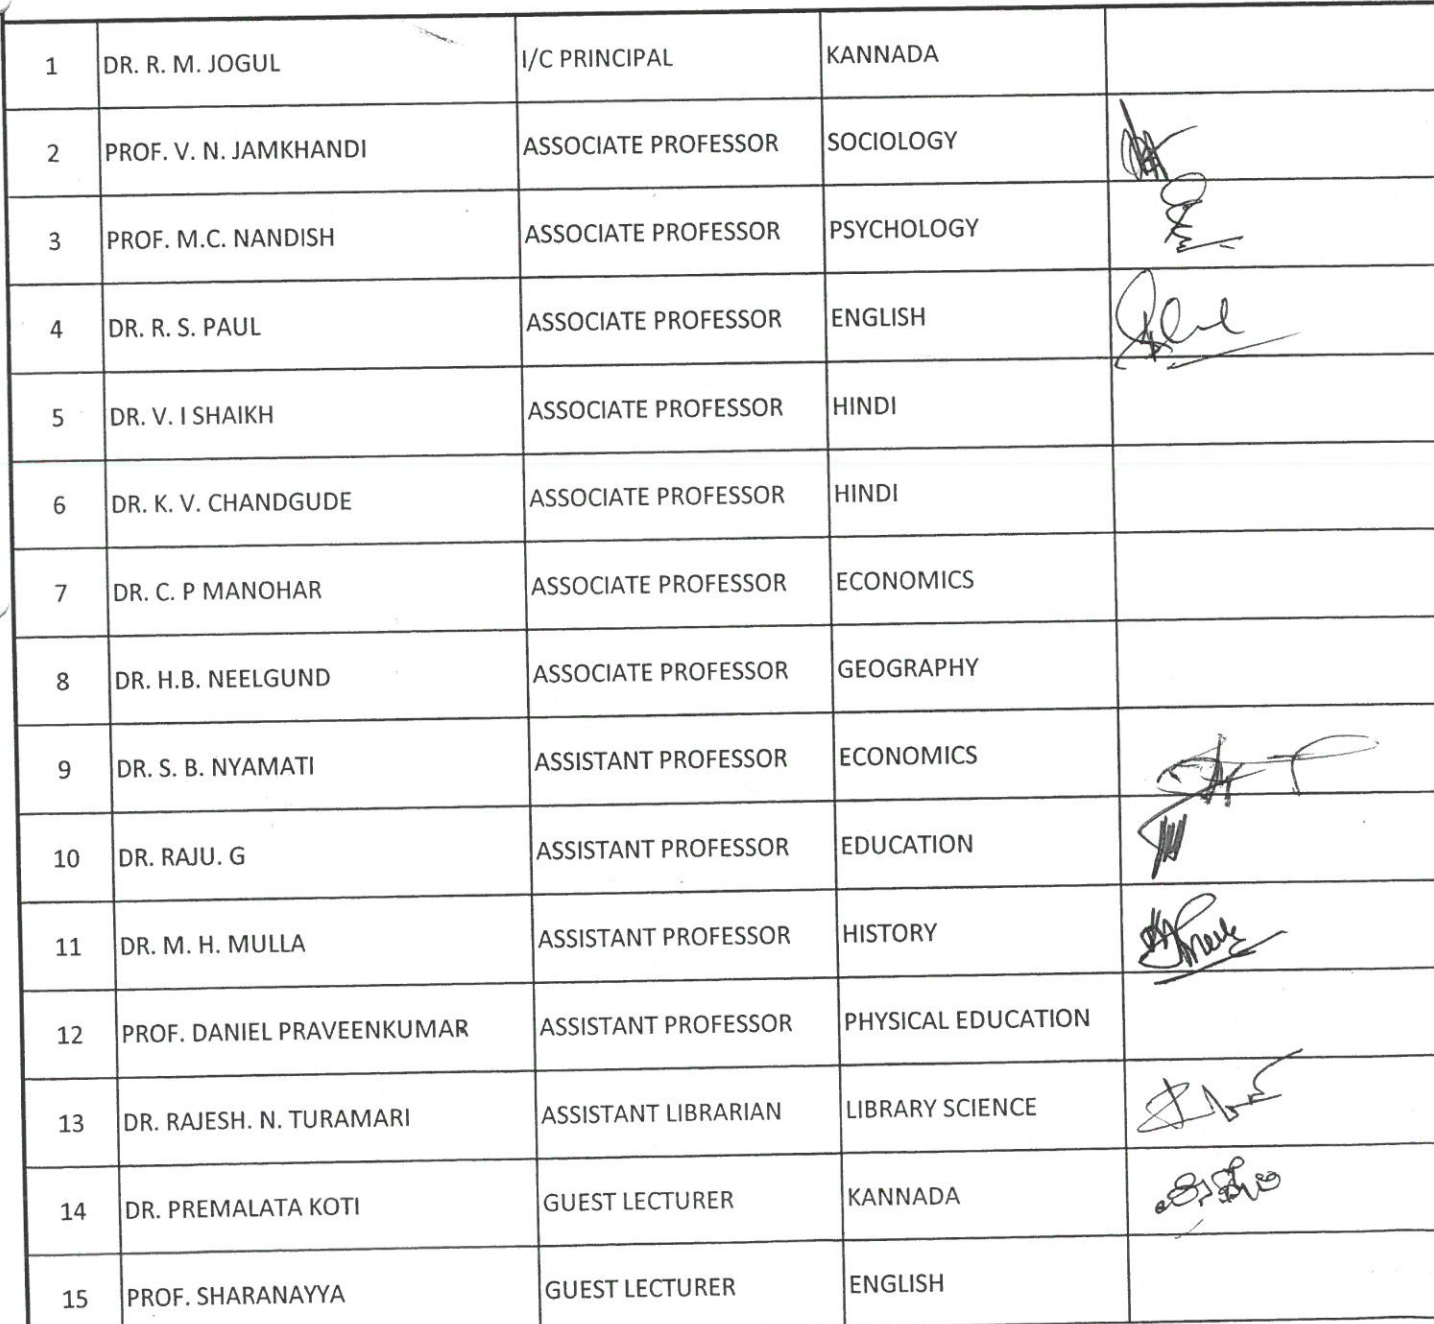 1 DR. R. M. JOGUL I/C PRINCIPAL KANNADA
2 PROF. V. N. JAMKHANDI ASSOCIATE PROFESSOR SOCIOLOGY
3 PROF. M.C. NANDISH ASSOCIATE PROFESSOR PSYCHOLOGY
4 DR. R. S. PAUL ASSOCIATE PROFESSOR ENGLISH
5 DR. V. I SHAIKH ASSOCIATE PROFESSOR HINDI
6 DR. K. V. CHANDGUDE ASSOCIATE PROFESSOR HINDI
7 DR. C. P MANOHAR ASSOCIATE PROFESSOR ECONOMICS
8 DR. H.B. NEELGUND ASSOCIATE PROFESSOR GEOGRAPHY
9 DR. S. B. NYAMATI ASSISTANT PROFESSOR ECONOMICS
10 DR. RAJU. G ASSISTANT PROFESSOR EDUCATION
11 DR. M. H. MULLA ASSISTANT PROFESSOR HISTORY
12 PROF. DANIEL PRAVEENKUMAR ASSISTANT PROFESSOR PHYSICAL EDUCATION
13 DR. RAJESH. N. TURAMARI ASSISTANT LIBRARIAN LIBRARY SCIENCE
14 DR. PREMALATA KOTI GUEST LECTURER KANNADA
15 PROF. SHARANAYYA GUEST LECTURER ENGLISH